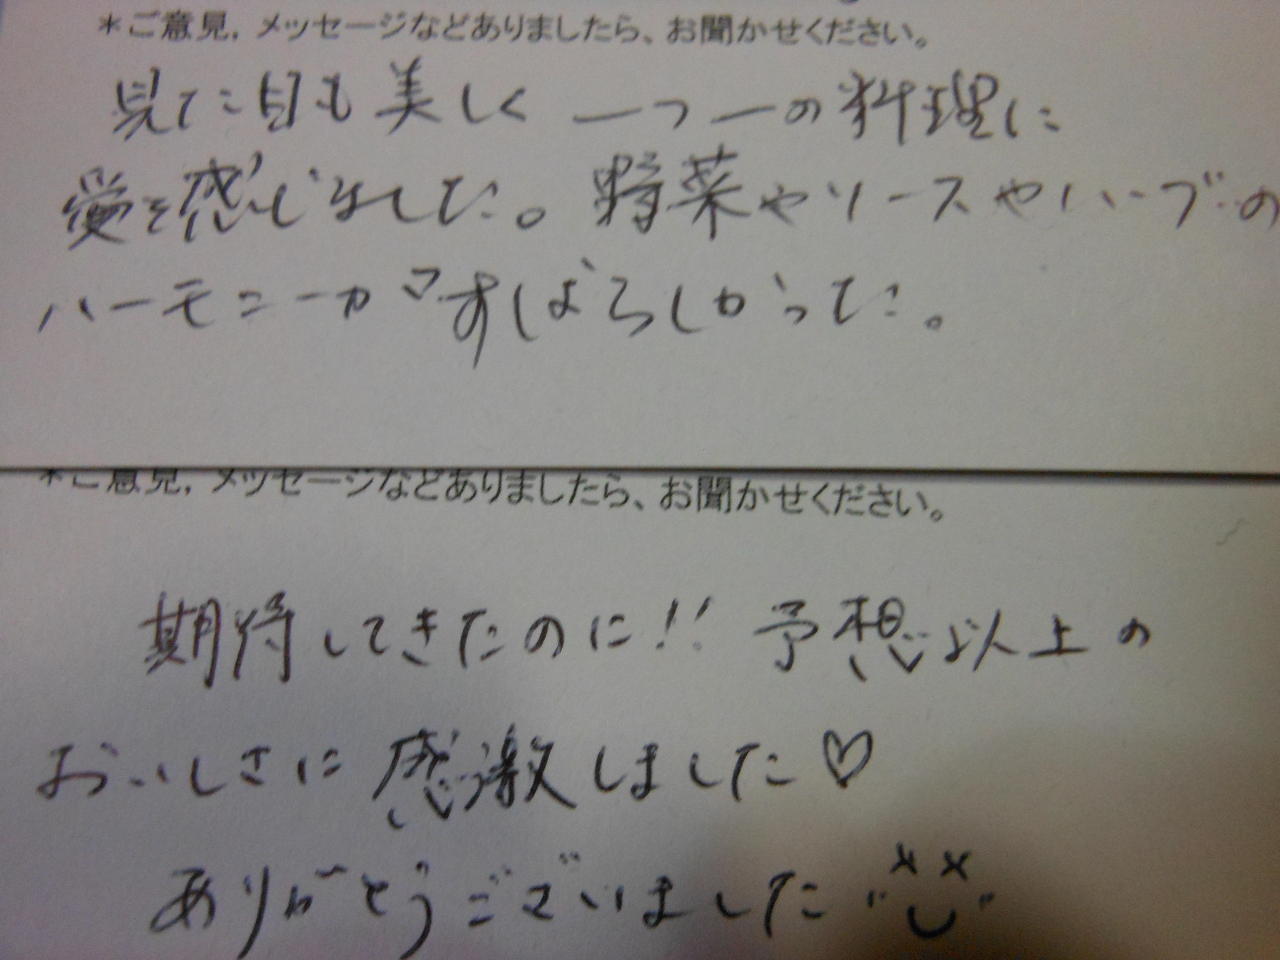 *ご意見，メッセージなどありましたら、お聞かせください。
見た目も美しく 一つ一の料理に
愛を感じました。野菜やソースやハーブの
ハーモニーがすばらしかった。
*ご意見，メッセージなどありましたら、お聞かせください。
期待してきたのに!! 予想以上の
おいしさに感激しました♡
ありがとうございました